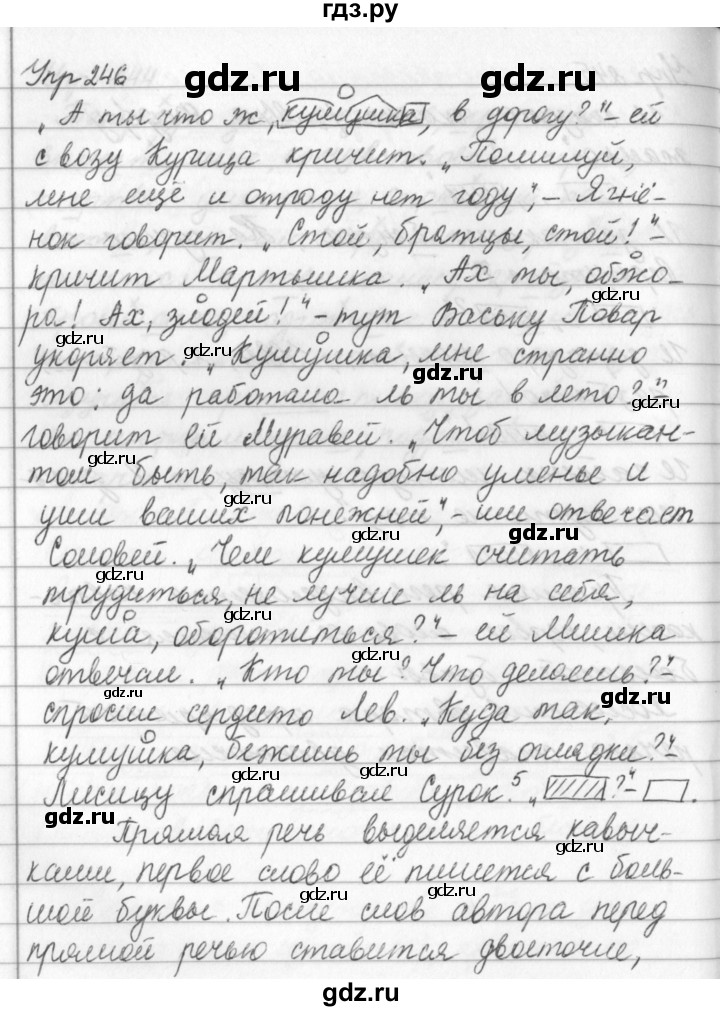 гдз.ру
Упр 246
„А ты что ж, кумушка, в дорогу?"– ей
с возу Курица кричит. „Помилуй,
мне ещё и отроду нет году",– Ягнё-
нок говорит. „Стой, братцы, стой!"–
кричит Мартышка. „Ах ты, обжо-
ра! Ах, злодей!"– тут Ваську Повар
укоряет. „Кумушка, мне странно
это: да работала ль ты в лето?"–
говорит ей Муравей. „Чтоб музыкан-
том быть, так надобно уменье и
уши ваших понежней",– им отвечает
Соловей. „Чем кумушек считать
трудиться, не лучше ль на себя,
кума, оборотиться?"– ей Мишка
отвечал. „Кто ты? Что делаешь?"–
спросил сердито Лев. „Куда так,
кумушка, бежишь ты без оглядки?"–
Лисицу спрашивал Сурок.⁵ „ ?"– .
Прямая речь выделяется кавыч-
ками, первое слово её пишется с боль-
шой буквы. После слов автора перед
прямой речью ставится двоеточие,
gdz.ru